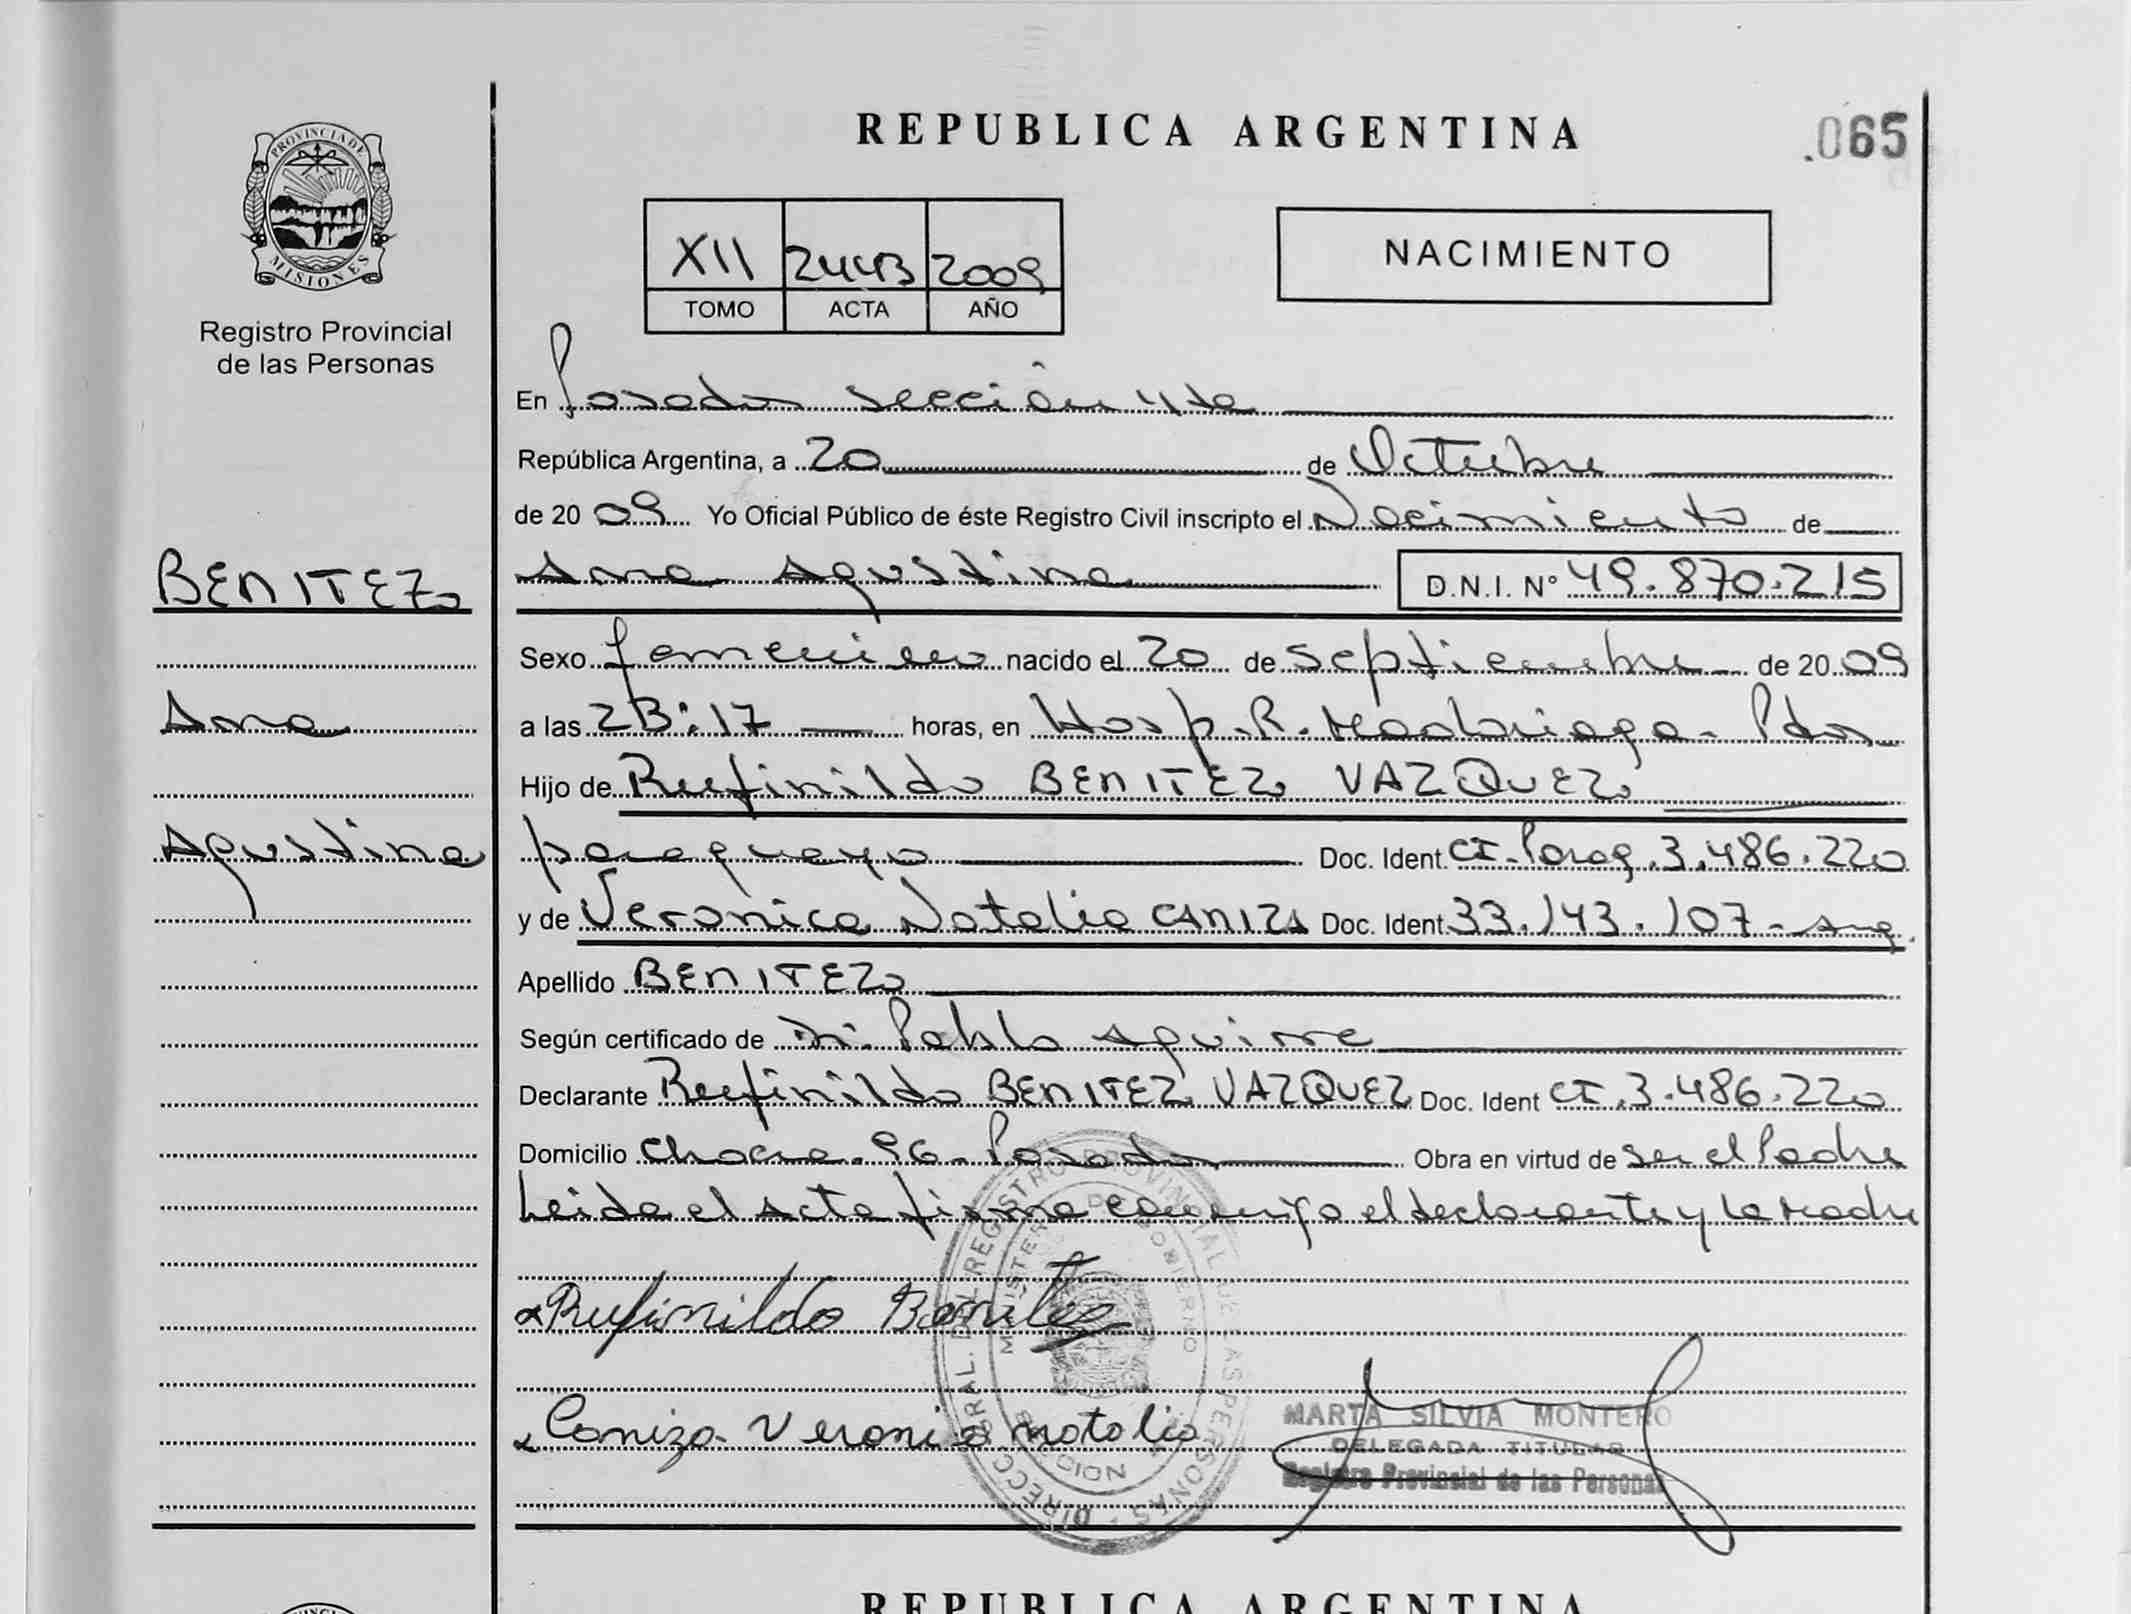 REPUBLICA ARGENTINA
.065
PROVINCIA DE MISIONES
Registro Provincial
de las Personas
XII 2443 2009
TOMO ACTA AÑO
NACIMIENTO
En Posadas sección 4ta
República Argentina, a 20 de Octubre
de 2009 Yo Oficial Público de éste Registro Civil inscripto el Nacimiento de
BENITEZ
Ana
Agustina
Ana Agustina D.N.I. Nº 49.870.215
Sexo femenino nacido el 20 de septiembre de 2009
a las 23:17 horas, en Hosp. R. Madariaga - Pdas
Hijo de Rufinildo BENITEZ VAZQUEZ
paraguayo Doc. Ident. CI-Parag. 3.486.220
y de Veronica Natalia CANIZA Doc. Ident. 33.143.107 - Arg.
Apellido BENITEZ
Según certificado de Dr. Pablo Aguirre
Declarante Rufinildo BENITEZ VAZQUEZ Doc. Ident CI. 3.486.220
Domicilio Chacra. 96 - Posadas Obra en virtud de ser el Padre
Leida el Acta firma conmigo el declarante y la Madre
Rufinildo Benitez
Caniza Veronica natalia
MARTA SILVIA MONTERO
DELEGADA TITULAR
Registro Provincial de las Personas
DIRECC. GRAL. DEL REGISTRO PROVINCIAL DE LAS PERSONAS
MINISTERIO DE GOBIERNO
REPUBLICA ARGENTINA